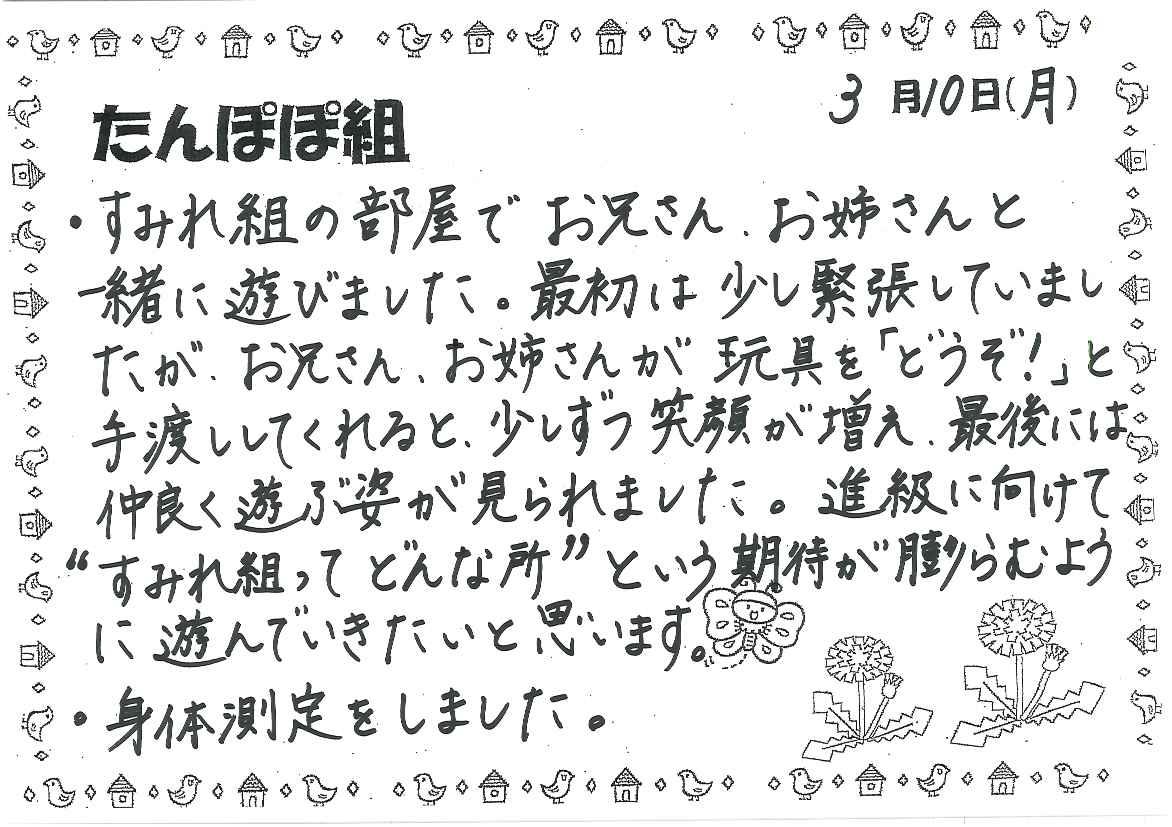 3月10日(月)
たんぽぽ組
・すみれ組の部屋でお兄さん、お姉さんと
一緒に遊びました。最初は少し緊張していまし
たが、お兄さん、お姉さんが玩具を「どうぞ!」と
手渡ししてくれると、少しずつ笑顔が増え、最後には
仲良く遊ぶ姿が見られました。進級に向けて
“すみれ組ってどんな所”という期待が膨らむよう
に遊んでいきたいと思います。
・身体測定をしました。